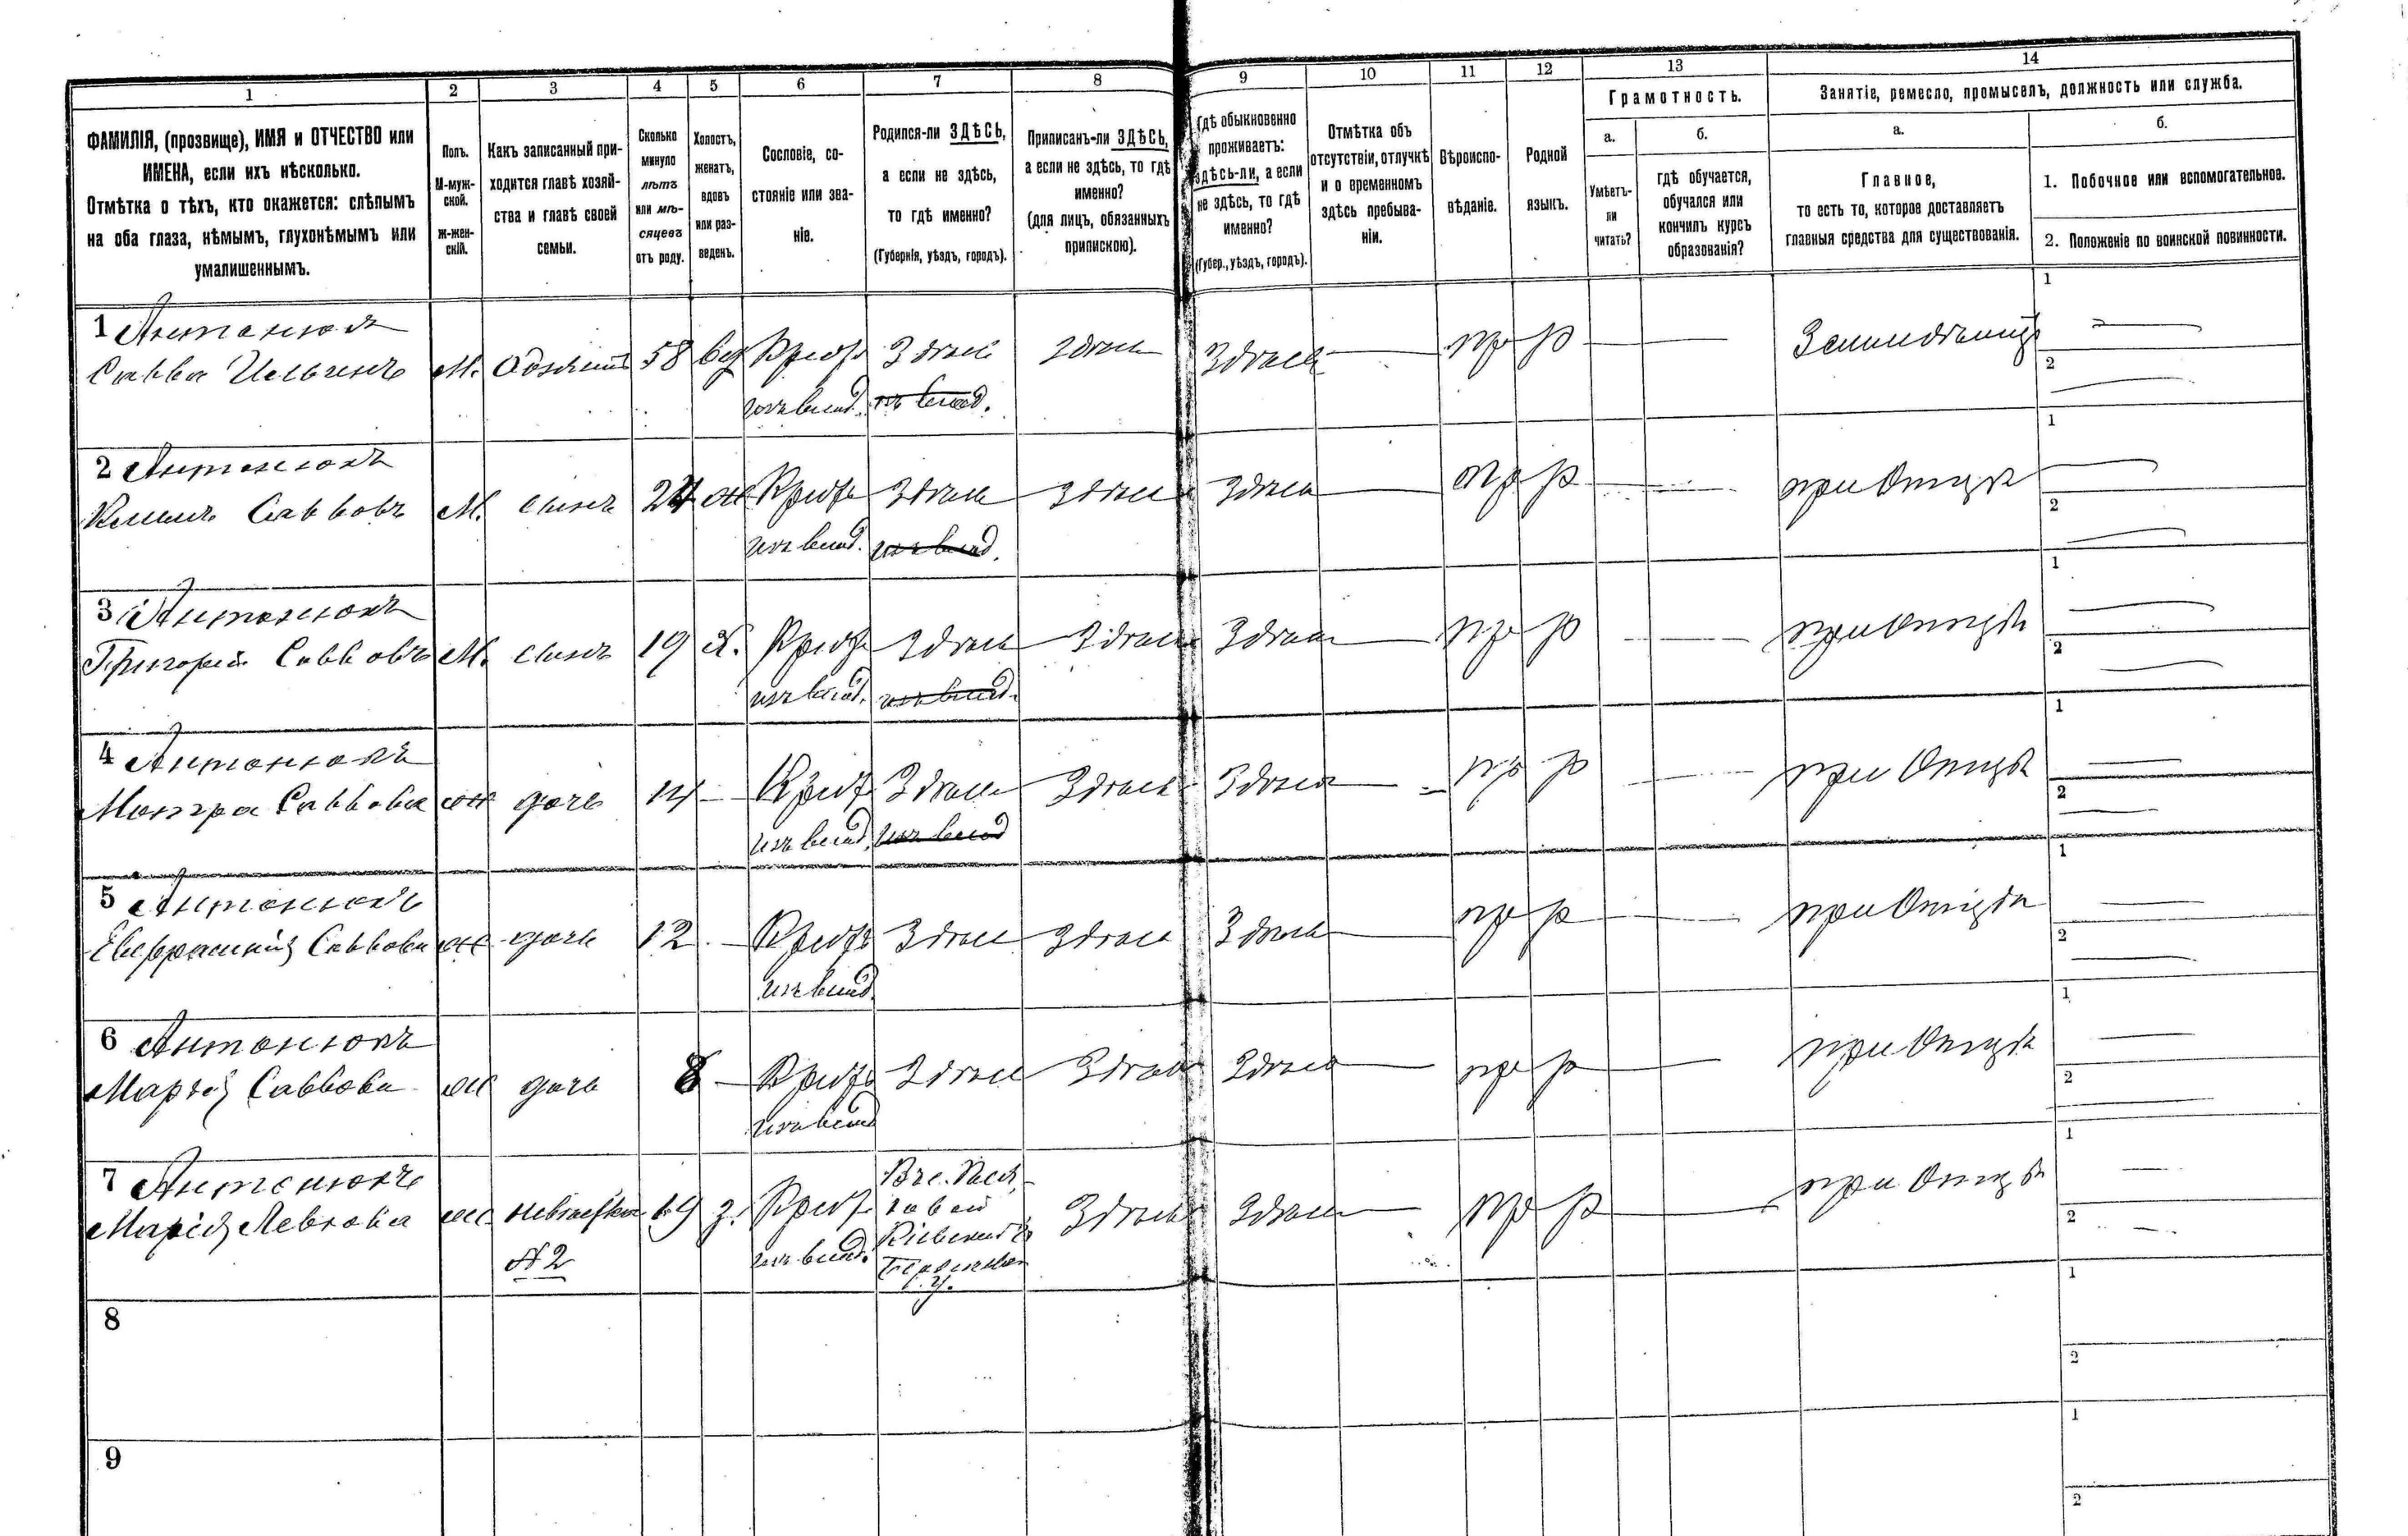 1 2 3 4 5 6 7 8 9 10 11 12 13 14
ФАМИЛІЯ, (прозвище), ИМЯ и ОТЧЕСТВО или
ИМЕНА, если ихъ нѣсколько.
Отмѣтка о тѣхъ, кто окажется: слѣпымъ
на оба глаза, нѣмымъ, глухонѣмымъ или
умалишеннымъ.
Полъ.
М-муж-
ской.
Ж-жен-
скій.
Какъ записанный при-
ходится главѣ хозяй-
ства и главѣ своей
семьи.
Сколько
минуло
лѣтъ
или мѣ-
сяцевъ
отъ роду.
Холостъ,
женатъ,
вдовъ
или раз-
веденъ.
Сословіе, со-
стояніе или зва-
ніе.
Родился-ли ЗДѢСЬ,
а если не здѣсь,
то гдѣ именно?
(Губернія, уѣздъ, городъ).
Приписанъ-ли ЗДѢСЬ,
а если не здѣсь, то гдѣ
именно?
(для лицъ, обязанныхъ
припискою).
Гдѣ обыкновенно
проживаетъ:
здѣсь-ли, а если
не здѣсь, то гдѣ
именно?
(Губер., уѣздъ, городъ).
Отмѣтка объ
отсутствіи, отлучкѣ
и о временномъ
здѣсь пребыва-
ніи.
Вѣроиспо-
вѣданіе.
Родной
языкъ.
Грамотность.
а.
Умѣетъ-
ли
читать?
б.
гдѣ обучается,
обучался или
кончилъ курсъ
образованія?
Занятіе, ремесло, промыселъ, должность или служба.
а.
Главное,
то есть то, которое доставляетъ
главныя средства для существованія.
б.
1. Побочное или вспомогательное.
2. Положеніе по воинской повинности.
1 Антонюкъ 1
Савва Ильинъ М. 58 вд Крест Здѣсь Здѣсь Здѣсь пр р 2
изъ влад. изъ влад.
2 Антонюкъ 1
Саввовъ М. сынъ 24 ж Крест Здѣсь Здѣсь Здѣсь пр р при Отцѣ 2
изъ влад. изъ влад.
3 Антонюкъ 1
Григорій Саввовъ М. сынъ 19 х. Крест Здѣсь Здѣсь Здѣсь пр р при Отцѣ 2
изъ влад. изъ влад.
4 Антонюкъ 1
Саввова ж дочь 14 Крест Здѣсь Здѣсь Здѣсь пр р при Отцѣ 2
изъ влад. изъ влад
5 Антонюкъ 1
Саввова ж дочь 12 Крест Здѣсь Здѣсь Здѣсь пр р при Отцѣ 2
изъ влад.
6 Антонюкъ 1
Марія Саввова ж дочь 8 Крест Здѣсь Здѣсь Здѣсь пр р при Отцѣ 2
изъ влад
7 Антонюкъ 1
Марія Левкова ж невѣстка 19 з. Крест Здѣсь Здѣсь пр р при Отцѣ 2
№ 2 изъ влад. у.
8 1
2
9 1
2